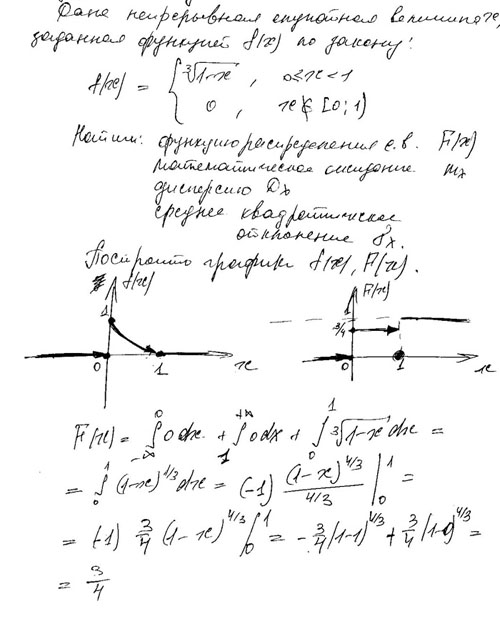 Дана непрерывная случайная величина,
заданная функцией f(x) по закону:
f(x) = { ∛(1-x) , 0≤x<1
0 , x∉[0;1)
Найти: функцию распределения с.в. F(x)
математическое ожидание mx
дисперсию Dx
среднее квадратическое
отклонение δx.
Построить графики f(x), F(x).
f(x) F(x)
1 1
3/4
0 1 x 0 1 x
F(x) = ∫_{-∞}^{0} 0dx + ∫_{1}^{+∞} 0dx + ∫_{0}^{1} ∛(1-x) dx =
= ∫_{0}^{1} (1-x)^{1/3} dx = (-1) (1-x)^{4/3} / (4/3) |_{0}^{1} =
= (-1) 3/4 (1-x)^{4/3} |_{0}^{1} = -3/4 (1-1)^{4/3} + 3/4 (1-0)^{4/3} =
= 3/4